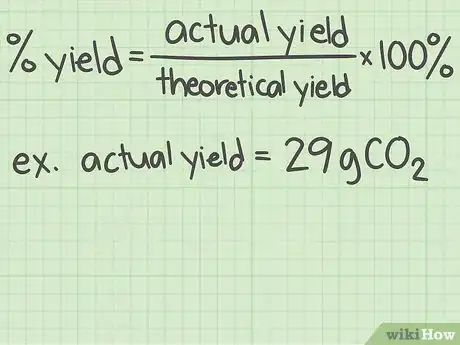 % yield = actual yield / theoretical yield × 100%
ex. actual yield = 29 g CO₂
wikiHow